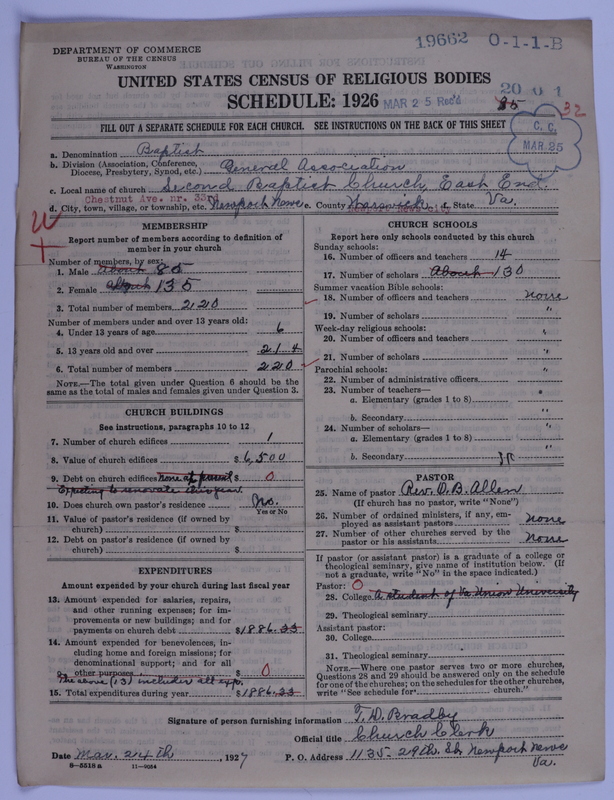 19662 0-1-1-B
DEPARTMENT OF COMMERCE
BUREAU OF THE CENSUS
WASHINGTON
UNITED STATES CENSUS OF RELIGIOUS BODIES
SCHEDULE: 1926
MAR 25 Rec'd
32
FILL OUT A SEPARATE SCHEDULE FOR EACH CHURCH. SEE INSTRUCTIONS ON THE BACK OF THIS SHEET
C. C.
MAR. 25
a. Denomination Baptist
b. Division (Association, Conference, Diocese, Presbytery, Synod, etc.) General Association
c. Local name of church Second Baptist Church, East End.
Chestnut Ave. nr. 33rd
d. City, town, village, or township, etc. Newport News e. County Warwick f. State Va.
MEMBERSHIP
Report number of members according to definition of
member in your church
Number of members, by sex:
1. Male About 85
2. Female About 135
3. Total number of members 220
Number of members under and over 13 years old:
4. Under 13 years of age 6
5. 13 years old and over 214
6. Total number of members 220
NOTE.—The total given under Question 6 should be
the same as the total of males and females given under Question 3.
CHURCH BUILDINGS
See instructions, paragraphs 10 to 12
7. Number of church edifices 1
8. Value of church edifices $6,500
9. Debt on church edifices None at present $ 0
Expecting to renovate this year
10. Does church own pastor's residence No.
Yes or No
11. Value of pastor's residence (if owned by
church) $
12. Debt on pastor's residence (if owned by
church) $
EXPENDITURES
Amount expended by your church during last fiscal year
13. Amount expended for salaries, repairs,
and other running expenses; for im-
provements or new buildings; and for
payments on church debt $1886.33
14. Amount expended for benevolences, in-
cluding home and foreign missions; for
denominational support; and for all
other purposes $ 0
The above (13) includes all exp.
15. Total expenditures during year $1886.33
CHURCH SCHOOLS
Report here only schools conducted by this church
Sunday schools:
16. Number of officers and teachers 14
17. Number of scholars About 130
Summer vacation Bible schools:
18. Number of officers and teachers none
19. Number of scholars "
Week-day religious schools:
20. Number of officers and teachers "
21. Number of scholars "
Parochial schools:
22. Number of administrative officers "
23. Number of teachers—
a. Elementary (grades 1 to 8) "
b. Secondary "
24. Number of scholars—
a. Elementary (grades 1 to 8) "
b. Secondary "
PASTOR
25. Name of pastor Rev. D. B. Allen
(If church has no pastor, write "None")
26. Number of ordained ministers, if any, em-
ployed as assistant pastors none
27. Number of other churches served by the
pastor or his assistants none
If pastor (or assistant pastor) is a graduate of a college or
theological seminary, give name of institution below. (If
not a graduate, write "No" in the space indicated.)
Pastor: 0
28. College A student of Va. Union University
29. Theological seminary
Assistant pastor:
30. College
31. Theological seminary
NOTE.—Where one pastor serves two or more churches,
Questions 28 and 29 should be answered only on the schedule
for one of the churches; on the schedules for the other churches,
write "See schedule for church."
Signature of person furnishing information T. D. Bradby
Official title Church Clerk
Date Mar. 24th, 1927 P. O. Address 1135-29th St. Newport News
Va.
8-5518 a 11-9054